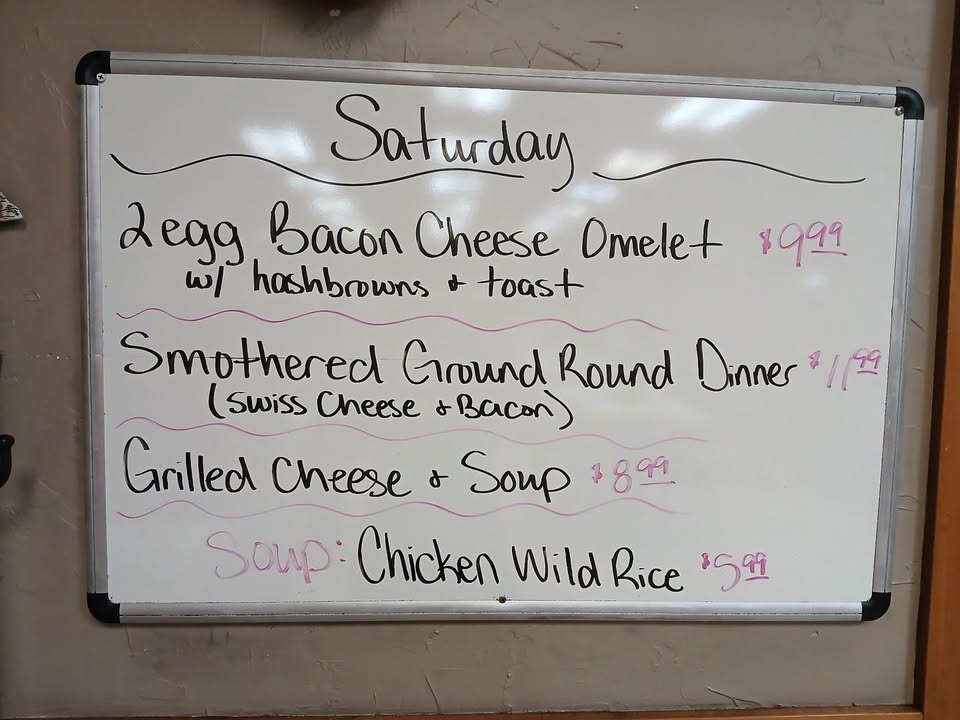 Saturday
2 egg Bacon Cheese Omelet $9.99
w/ hashbrowns & toast
Smothered Ground Round Dinner $11.99
(Swiss Cheese & Bacon)
Grilled Cheese & Soup $8.99
Soup: Chicken Wild Rice $5.99